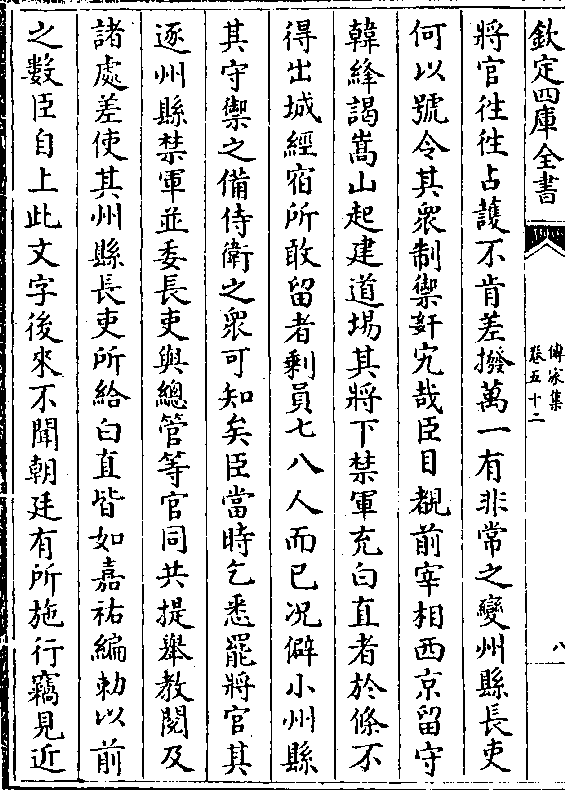 欽定四庫全書
傳家集
卷五十二
八
將官徃徃占護不肯差撥萬一有非常之變州縣長吏
何以號令其衆制禦奸宄哉臣目覩前宰相西京留守
韓絳謁嵩山起建道場其將下禁軍充白直者於條不
得出城經宿所敢留者剩員七八人而已况僻小州縣
其守禦之備侍衛之衆可知矣臣當時乞悉罷將官其
逐州縣禁軍並委長吏與總管等官同共提舉教閱及
諸處差使其州縣長吏所給白直皆如嘉祐編勅以前
之數臣自上此文字後來不聞朝廷有所施行竊見近